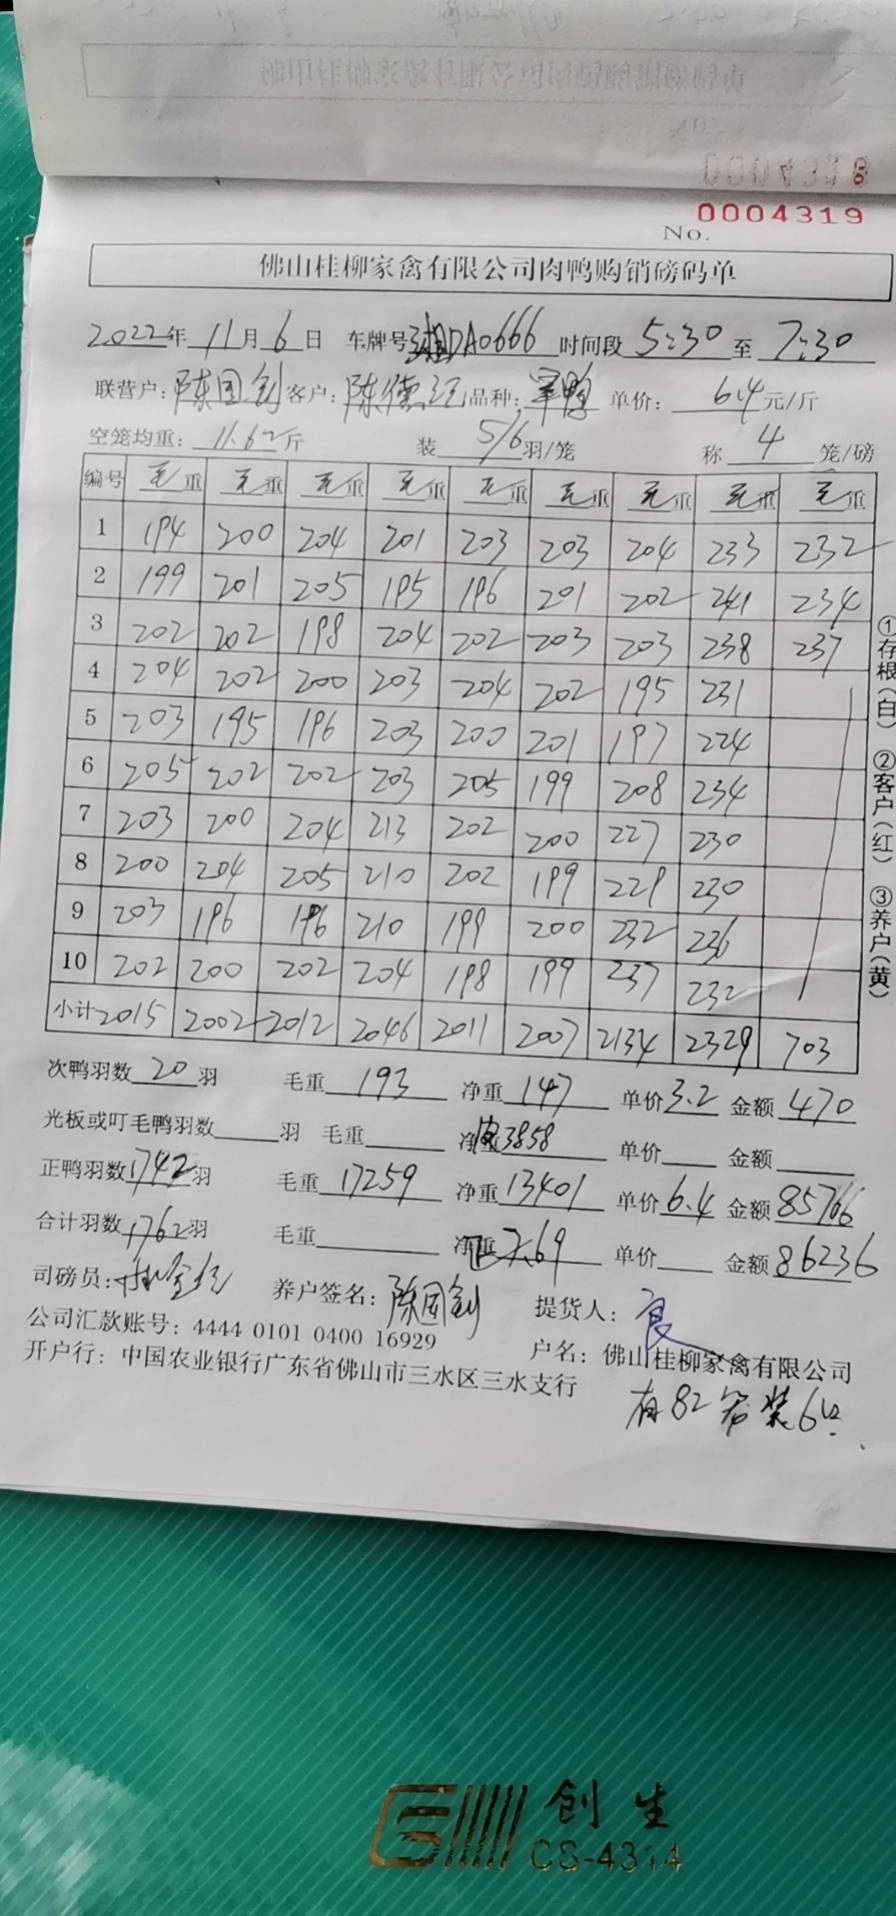 0004319
No.
佛山桂柳家禽有限公司肉鸭购销磅码单
2022年11月6日 车牌号湘DA0666 时间段5:30至7:30
联营户:陈国剑 客户:陈德 品种: 鸭 单价:6.4元/斤
空笼均重:11.62斤 装5/6羽/笼 称4笼/磅
编号 毛重 毛重 毛重 毛重 毛重 毛重 毛重 毛重 毛重
1 194 200 204 201 203 203 204 233 232
2 199 201 205 195 196 201 202 241 234
3 202 202 198 204 202 203 203 238 237
4 204 202 200 203 204 202 195 231
5 203 195 196 203 200 201 197 224
6 205 202 202 203 205 199 208 234
7 203 200 204 213 202 200 227 230
8 200 204 205 210 202 199 229 230
9 203 196 196 210 199 200 232 236
10 202 200 202 204 198 199 237 232
小计 2015 2002 2012 2046 2011 2007 2134 2329 703
①存根(白) ②客户(红) ③养户(黄)
次鸭羽数20羽 毛重193 净重147 单价3.2 金额470
光板或叮毛鸭羽数 羽 毛重 净 3858 单价 金额
正鸭羽数1742羽 毛重17259 净重13401 单价6.4 金额85766
合计羽数1762羽 毛重 净重7.69 单价 金额86236
司磅员: 养户签名:陈国剑 提货人:良
公司汇款账号:4444 0101 0400 16929 户名:佛山桂柳家禽有限公司
开户行:中国农业银行广东省佛山市三水区三水支行
有82笼装6只.
创生
CS-4314